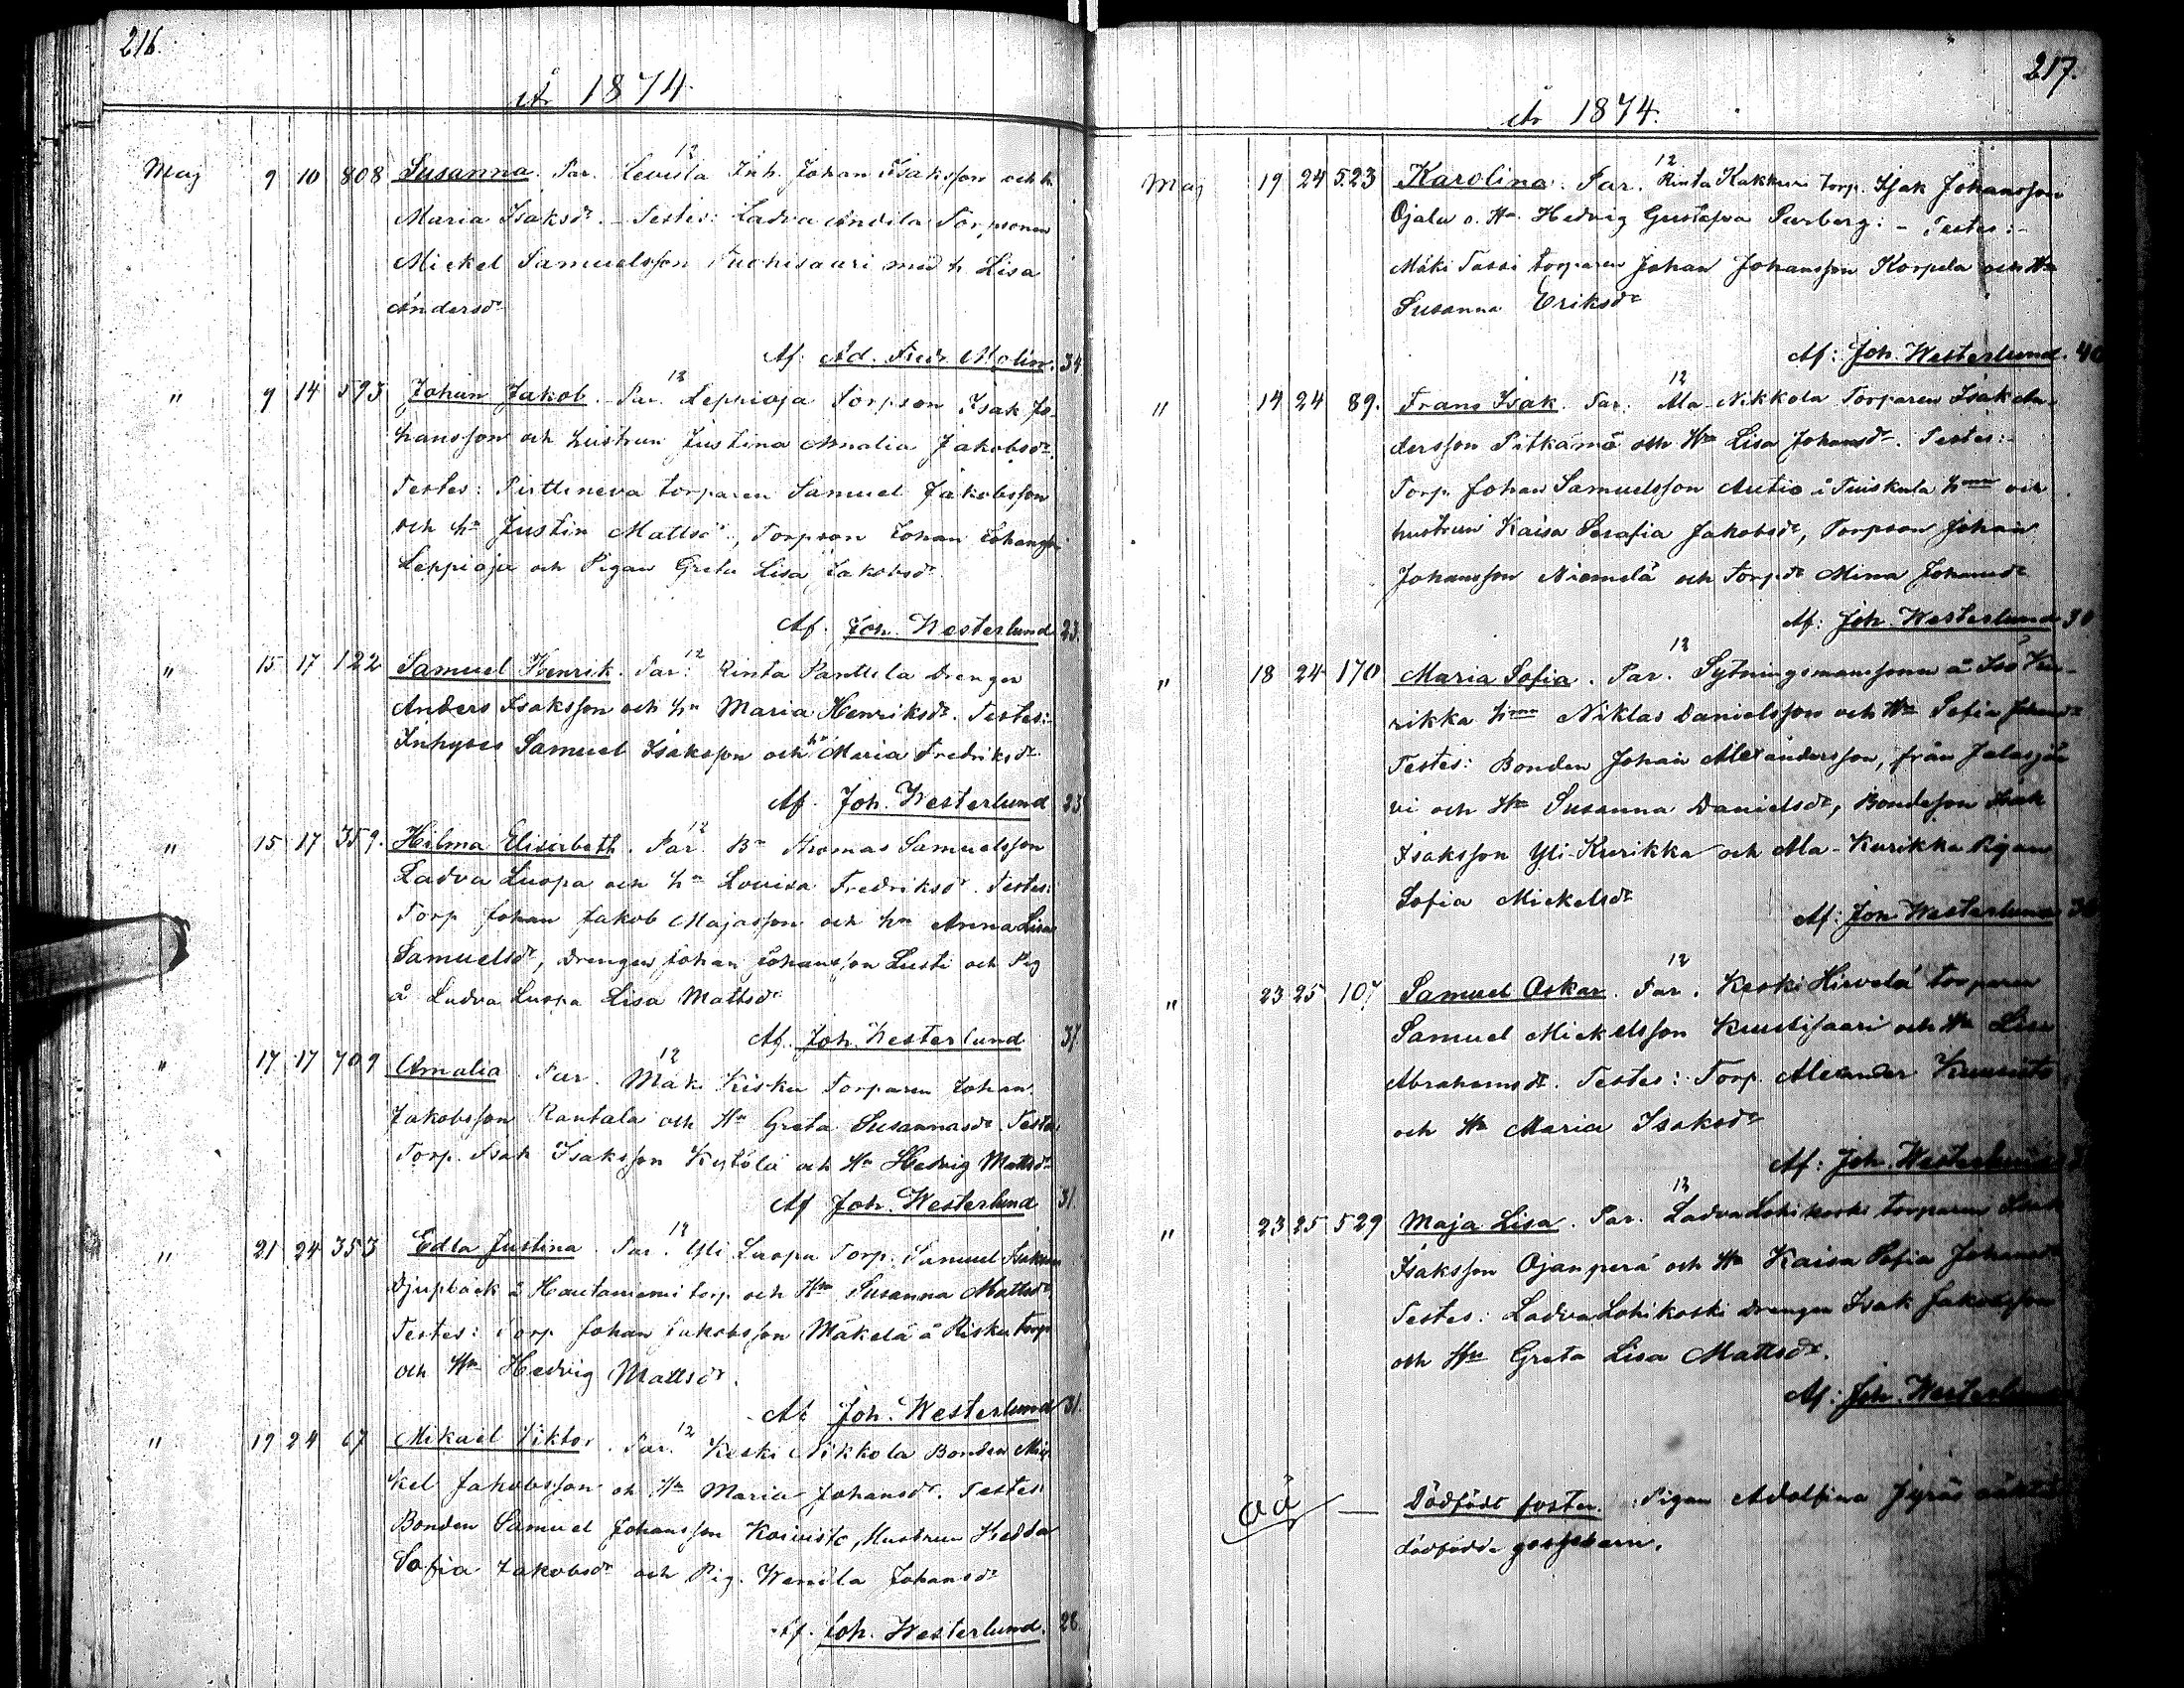 216.
År 1874.
Maj 9 10 808 Susanna. Par. 12 Leviita Inh. Johan Isaksson och h.
Maria Isaksdr. Testes: Ladva Andila Torpsonen
Mickel Samuelsson med h. Lisa
Andersdr
Af. Ad. Fredr. Molin. 34
" 9 14 593 Johan Jakob. Par. 12 Leppioja Torpson Isak Jo-
hansson och hustrun Justina Amalia Jakobsdr.
Testes: Pirttineva torparen Samuel Jakobsson
och hn Justin Mattsdr, Torpson Johan Johansson
Leppioja och Pigan Greta Lisa Jakobsdr.
Af. Joh. Westerlund 23.
" 15 17 122 Samuel Henrik. Par. 12 Rinta Panttila Drengen
Anders Isaksson och hn Maria Henriksdr. Testes:-
Inhyses Samuel Isaksson och hn Maria Fredriksdr
Af. Joh. Westerlund 23
" 15 17 359. Hilma Elisabeth. Par. 12 Bn Thomas Samuelsson
Ladva Luopa och hn Lovisa Fredriksdr. Testes:
Torp Johan Jakob Majasson och hn Anna Lisa
Samuelsdr, Drengen Johan Johansson Lusti och Pig
å Ladva Luopa Lisa Mattsdr
Af. Joh. Westerlund 37.
" 17 17 709 Amalia. Par. 12 Mäki Kisku Torparen Johan
Jakobsson Rantala och Hn Greta Susannasdr. Testes
Torp. Isak Isaksson Kytölä och Hn Hedvig Mattsdr
Af Joh. Westerlund 31.
" 21 24 353 Edla Justina. Par. 12 Yli Luopa Torp. Samuel Isaksson
Djupbäck å Hautaniemi torp och Hn Susanna Mattsdr.
Testes: Torp Johan Jakobsson Mäkelä å Kisku torp
och Hn Hedvig Mattsdr.
Af Joh. Westerlund 31.
" 19 24 67 Mikael Viktor. Par. 12 Keski Nikkola Bonden Mic-
kel Jakobsson och Hn Maria Johansdr. Testes
Bonden Samuel Johansson Koivisto, Hustrun Hedda
Sofia Jakobsdr och Pig. Wendla Johansdr
Af. Joh. Westerlund. 28.
217.
År 1874.
Maj 19 24 523 Karolina. Par. 12 Rinta Kakkuri torp. Isak Johansson
Ojala o. Hn. Hedvig Gustafva Purberg: - Testes:-
Mäki Passi torparen Johan Johansson Korpela och Hn
Susanna Eriksdr
Af: Joh. Westerlund. 40
" 14 24 89. Frans Isak. Par. 12 Ala-Nikkola Torparen Isak An-
dersson Pitkämö och Hn Lisa Johansdr. Testes:-
Torp. Johan Samuelsson Autio å Tuiskula hmn och
hustrun Kaisa Serafia Jakobsdr, Torpson Johan
Johansson Niemelä och Torpdr Mina Johansdr
Af: Joh. Westerlund 30
" 18 24 170 Maria Sofia. Par. 12 Sytningsmanssonen å Iso Ku-
rikka hmn Niklas Danielsson och Hn Sofia Johansdr
Testes: Bonden Johan Alexandersson, från Jalasjär-
vi och Hn Susanna Danielsdr, Bondeson Isak
Isaksson Yli-Kurikka och Ala-Kurikka Pigan
Sofia Mickelsdr
Af: Joh Westerlund
" 23 25 107 Samuel Oskar. Par. 12 Keski Hirvelä torparen
Samuel Mickelsson Kuusisaari och Hn Lisa
Abrahamsdr. Testes: Torp. Alexander Kuusisto
och Hn Maria Isaksdr
Af: Joh Westerlund
" 23 25 529 Maja Lisa. Par. 12 Ladva Lohikoski torparen Isak
Isaksson Ojanperä och Hn Kaisa Sofia Johansdr
Testes: Ladva Lohikoski Drengen Isak Jakobsson
och Hn Greta Lisa Mattsdr.
Af: Joh. Westerlund
oä — Dödfödt foster. Pigan Adolfina Jyräs oäkta
dödfödda gossebarn.